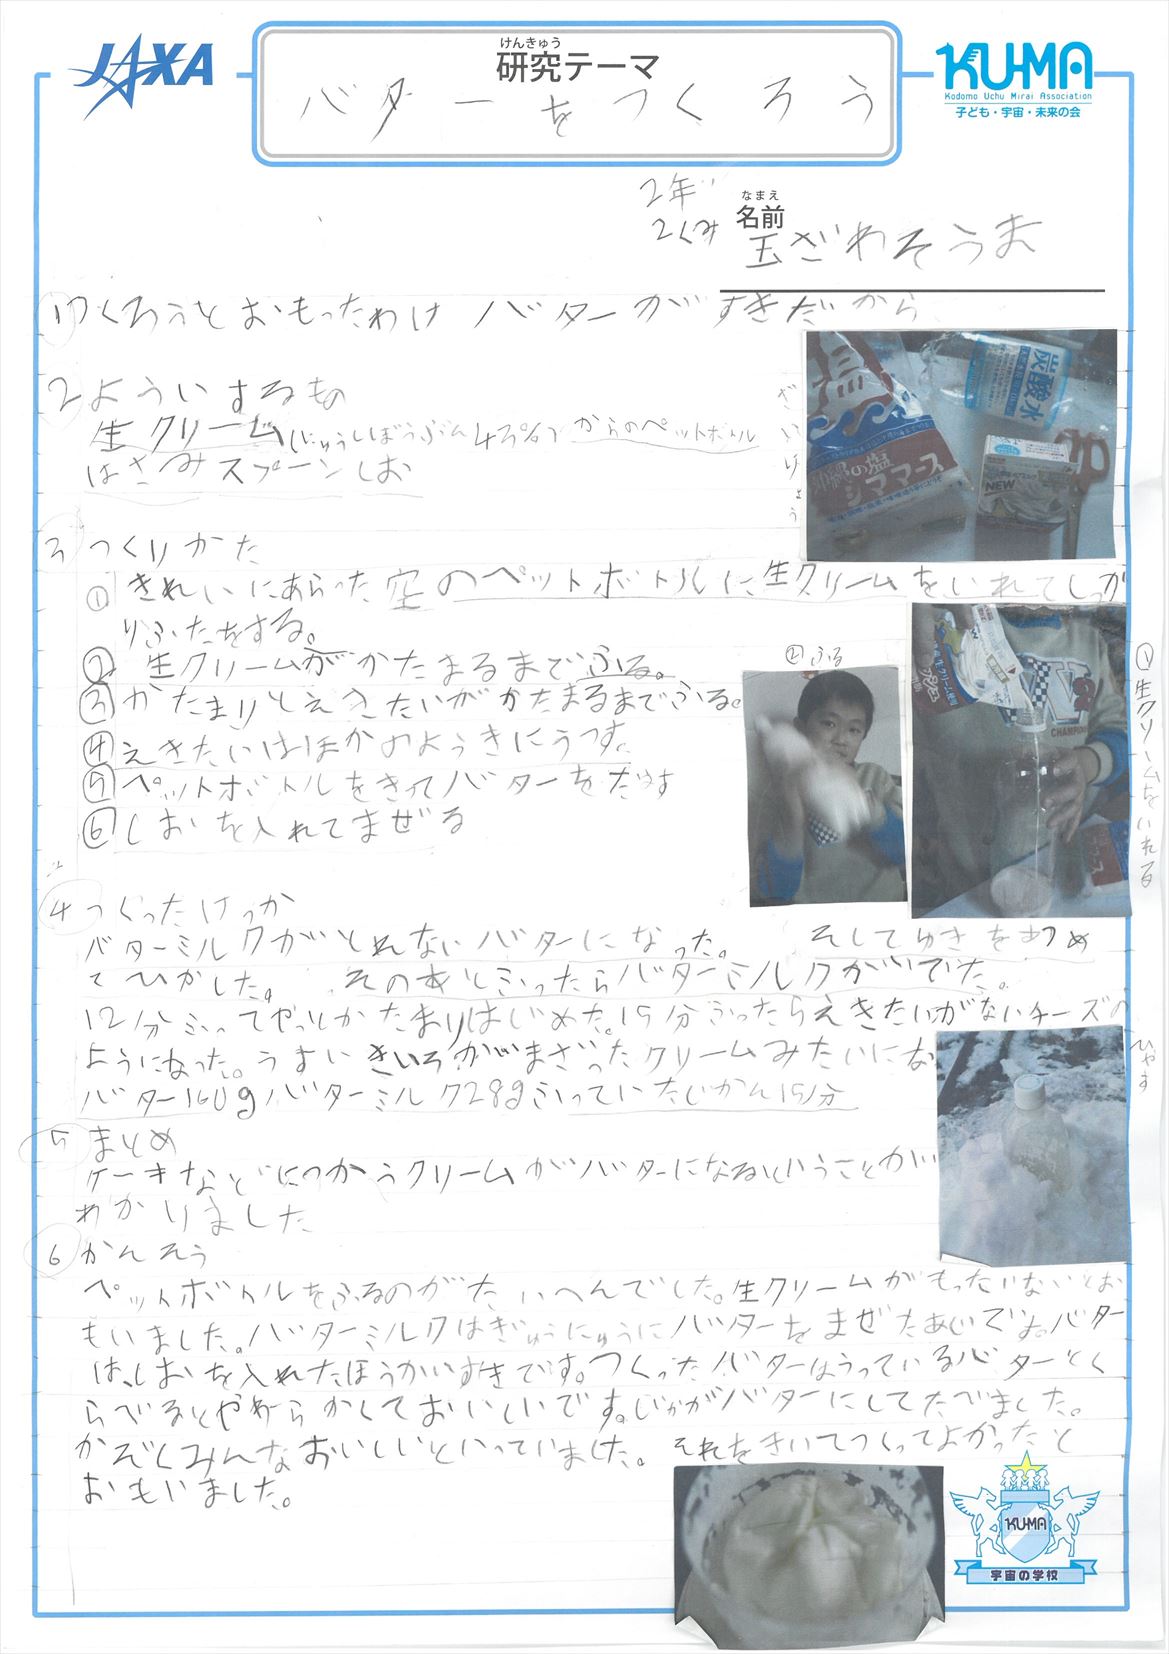 JAXA
けんきゅう
研究テーマ
バターをつくろう
KU-MA
Kodomo Uchu Mirai Association
子ども・宇宙・未来の会
2年
2くみ
なまえ
名前
玉ざわそうま
1つくろうとおもったわけ バターがすきだから
2よういするもの
生クリーム(にゅうしぼうぶん45%)からのペットボトル
はさみスプーンしお
ざいりょう
炭酸水
沖縄の塩
シママース
NEW
3つくりかた
①きれいにあらった空のペットボトルに生クリームをいれてしっか
りふたをする。
②生クリームがかたまるまでふる。
③かたまりとえきたいがかたまるまでふる。
④えきたいはほかのようきにうつす
⑤ペットボトルをきってバターをだす
⑥しおを入れてまぜる
②ふる
①生クリームをいれる
CHAMPION
4つくったけっか
バターミルクがとれないバターになった。 そしてゆきをつめ
てひやした。 そのあとふったらバターミルクがでた。
12分ふってやっとかたまりはじめた。15分ふったらえきたいがないチーズの
ようになった。うすいきいろがまざったクリームみたいにな
バター160gバターミルク28gふっていたじかん15分
ひやす
5まとめ
ケーキなどにつかうクリームがバターになるということが
わかりました
6かんそう
ペットボトルをふるのがたいへんでした。生クリームがもったいないとお
もいました。バターミルクはぎゅうにゅうにバターをまぜたあじです。バター
は、しおを入れたほうがすきです。つくったバターはうっているバターとく
らべるとやわらかくておいしいです。じゃがバターにしてたべました。
かぞくみんなおいしいといっていました。それをきいてつくってよかったと
おもいました。
KU-MA
宇宙の学校